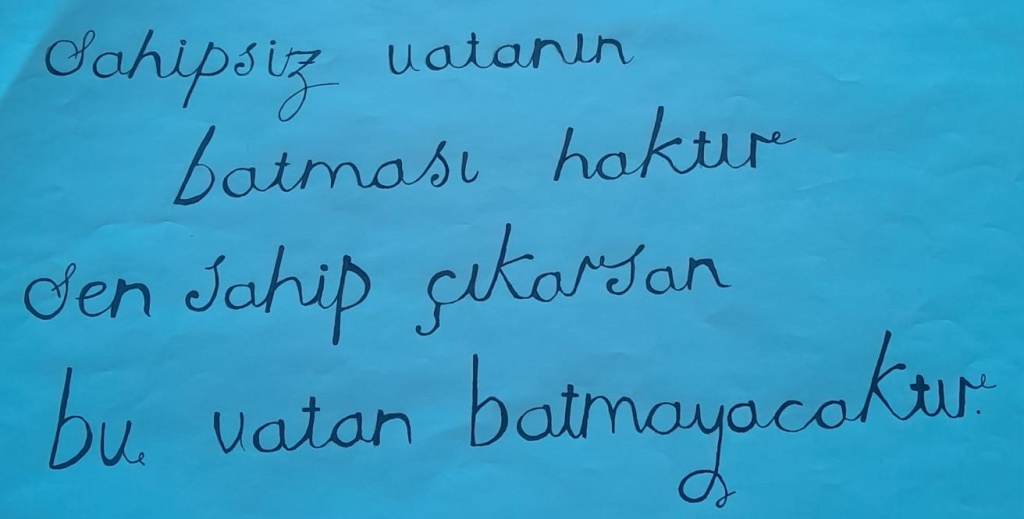 Sahipsiz vatanın
batması haktır
Sen sahip çıkarsan
bu vatan batmayacaktır.